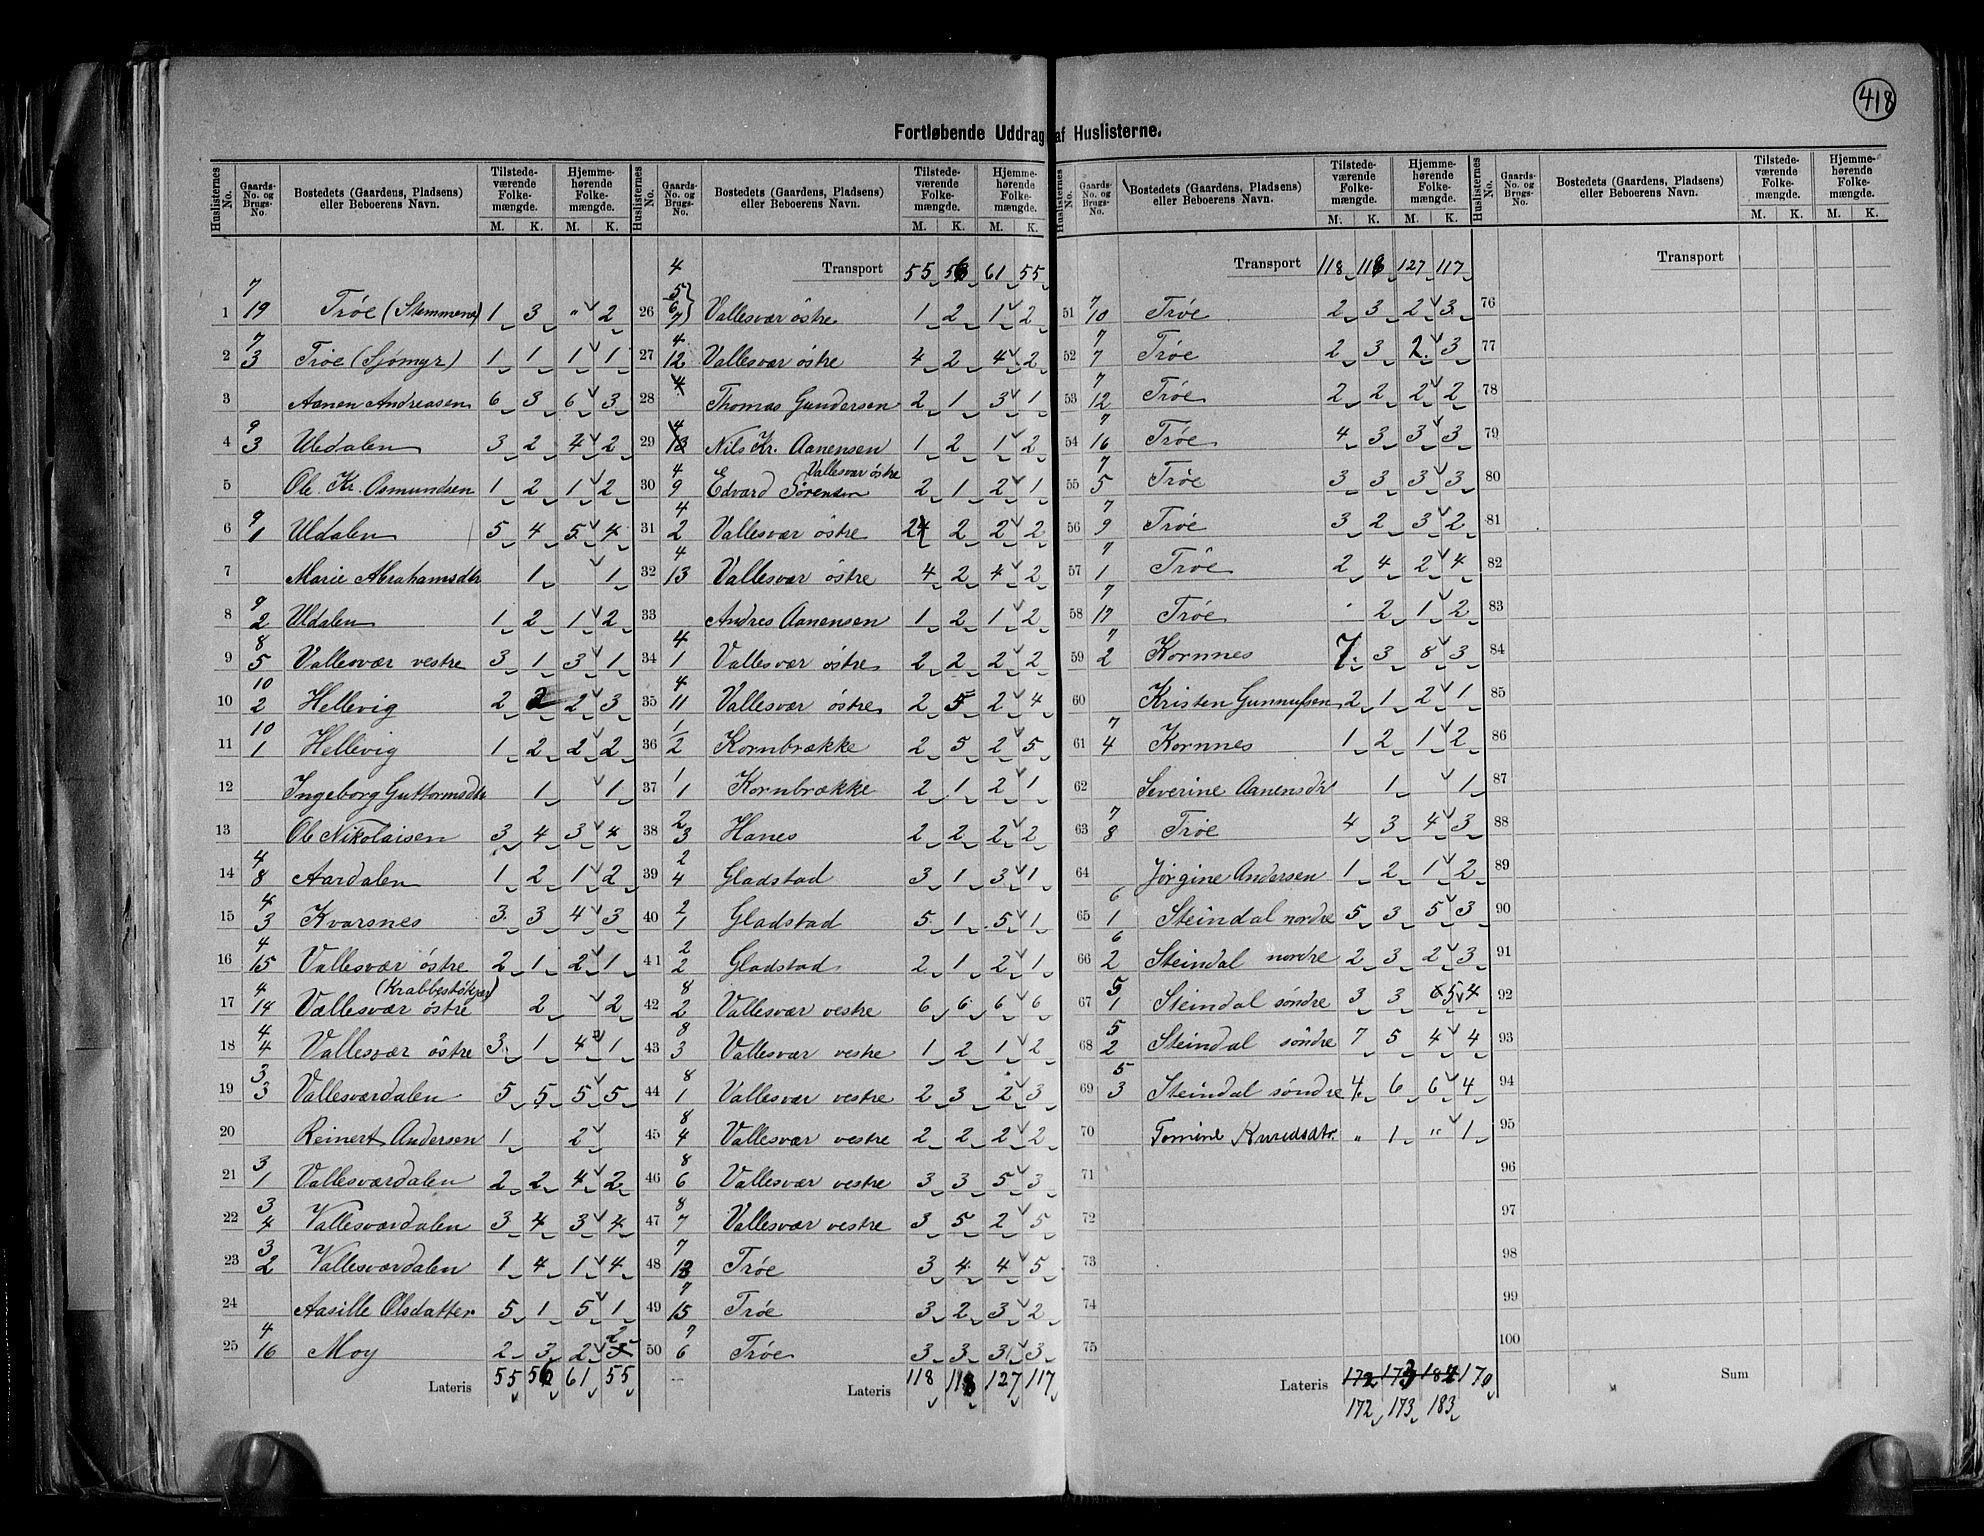 418
Fortløbende Uddrag af Huslisterne.
Huslisternes No. | Gaards-No. og Brugs-No. | Bostedets (Gaardens, Pladsens) eller Beboerens Navn. | Tilstedeværende Folkemængde. M. K. | Hjemmehørende Folkemængde. M. K.
1 7/19 Trøe (Stemmene) 1 3 " 2
2 7/3 Trøe (Sjømyr) 1 1 1 1
3 Aanen Andreasen 6 3 6 3
4 9/3 Uledalen 3 2 4 2
5 Ole Kr. Osmundsen 1 2 1 2
6 9/1 Uldalen 5 4 5 4
7 Marie Abrahamsdtr 1 1
8 9/2 Uldalen 1 2 1 2
9 8/5 Vallesvær vestre 3 1 3 1
10 10/2 Hellevig 2 2 2 3
11 10/1 Hellevig 1 2 2 2
12 Ingeborg Guttormsdtr 1 1
13 Ole Nikolaisen 3 4 3 4
14 4/8 Aardalen 1 2 1 2
15 4/3 Kvarsnes 3 3 4 3
16 4/15 Vallesvær østre 2 1 2 1
17 4/14 Vallesvær østre (Krabbestøkjær) 2 2
18 4/4 Vallesvær østre 3 1 4 1
19 3/3 Vallesværdalen 5 5 5 5
20 Reinert Andersen 1 2
21 3/1 Vallesværdalen 2 2 4 2
22 3/4 Vallesværdalen 3 4 3 4
23 3/2 Vallesværdalen 1 4 1 4
24 Aasille Olsdatter 5 1 5 1
25 4/16 Moy 2 3 2 2
Lateris 55 56 61 55
Transport 55 56 61 55
26 4/5 6 7 Vallesvær østre 1 2 1 2
27 4/12 Vallesvær østre 4 2 4 2
28 4 Thomas Gundersen 2 1 3 1
29 4/10 Nils Kr. Aanensen 1 2 1 2
30 4/9 Vallesvær østre Edvard Sørensen 2 1 2 1
31 4/2 Vallesvær østre 2 2 2 2
32 4/13 Vallesvær østre 4 2 4 2
33 Andres Aanensen 1 2 1 2
34 4/1 Vallesvær østre 2 2 2 2
35 4/11 Vallesvær østre 2 5 2 4
36 1/2 Kornbrække 2 5 2 5
37 1/1 Kornbrække 2 1 2 1
38 2/3 Hanes 2 2 2 2
39 2/4 Gladstad 3 1 3 1
40 2/1 Gladstad 5 1 5 1
41 2/2 Gladstad 2 1 2 1
42 8/2 Vallesvær vestre 6 6 6 6
43 8/3 Vallesvær vestre 1 2 1 2
44 8/1 Vallesvær vestre 2 3 2 3
45 8/4 Vallesvær vestre 2 2 2 2
46 8/6 Vallesvær vestre 3 3 5 3
47 8/7 Vallesvær vestre 3 5 2 5
48 7/13 Trøe 3 4 4 5
49 7/15 Trøe 3 2 3 2
50 7/6 Trøe 3 3 3 3
Lateris 118 118 127 117
Transport 118 118 127 117
51 7/10 Trøe 2 3 2 3
52 7/7 Trøe 2 3 2 3
53 7/12 Trøe 2 2 2 2
54 7/16 Trøe 4 3 3 3
55 7/5 Trøe 3 3 3 3
56 7/9 Trøe 3 2 3 2
57 7/1 Trøe 2 4 2 4
58 7/17 Trøe 2 1 2
59 7/2 Kornnes 7 3 8 3
60 Kristen Gunnufsen 2 1 2 1
61 7/4 Kornnes 1 2 1 2
62 Severine Aanensdr 1 1
63 7/8 Trøe 4 3 4 3
64 Jørgine Andersen 1 2 1 2
65 6/1 Steindal nordre 5 3 5 3
66 6/2 Steindal nordre 2 3 2 3
67 5/1 Steindal søndre 3 3 5 4
68 5/2 Steindal søndre 7 5 4 4
69 5/3 Steindal søndre 4 6 6 4
70 Tomine Knudsdtr. " 1 " 1
71
72
73
74
75
Lateris 172 173 182 170
172 173 183
Transport
76
77
78
79
80
81
82
83
84
85
86
87
88
89
90
91
92
93
94
95
96
97
98
99
100
Sum